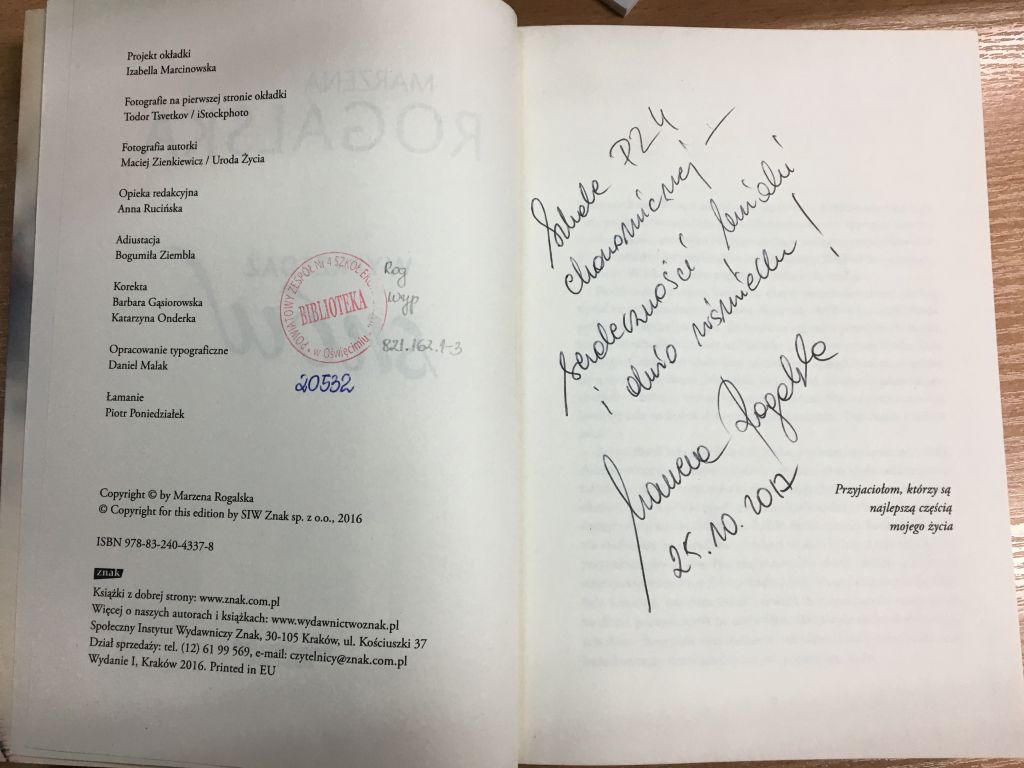 Projekt okładki
Izabella Marcinowska
Fotografie na pierwszej stronie okładki
Todor Tsvetkov / iStockphoto
Fotografia autorki
Maciej Zienkiewicz / Uroda Życia
Opieka redakcyjna
Anna Rucińska
Adiustacja
Bogumiła Ziembla
Korekta
Barbara Gąsiorowska
Katarzyna Onderka
Opracowanie typograficzne
Daniel Malak
Łamanie
Piotr Poniedziałek
POWIATOWY ZESPÓŁ Nr 4 SZKÓŁ
BIBLIOTEKA
w Oświęcimiu
Rog
wyp
821.162.1-3
20532
Copyright © by Marzena Rogalska
© Copyright for this edition by SIW Znak sp. z o.o., 2016
ISBN 978-83-240-4337-8
znak
Książki z dobrej strony: www.znak.com.pl
Więcej o naszych autorach i książkach: www.wydawnictwoznak.pl
Społeczny Instytut Wydawniczy Znak, 30-105 Kraków, ul. Kościuszki 37
Dział sprzedaży: tel. (12) 61 99 569, e-mail: czytelnicy@znak.com.pl
Wydanie I, Kraków 2016. Printed in EU
Szkole PZ4
ekonomicznej –
serdeczność
i dużo uśmiechu!
Marzena Rogalska
25.10.2017
Przyjaciołom, którzy są
najlepszą częścią
mojego życia